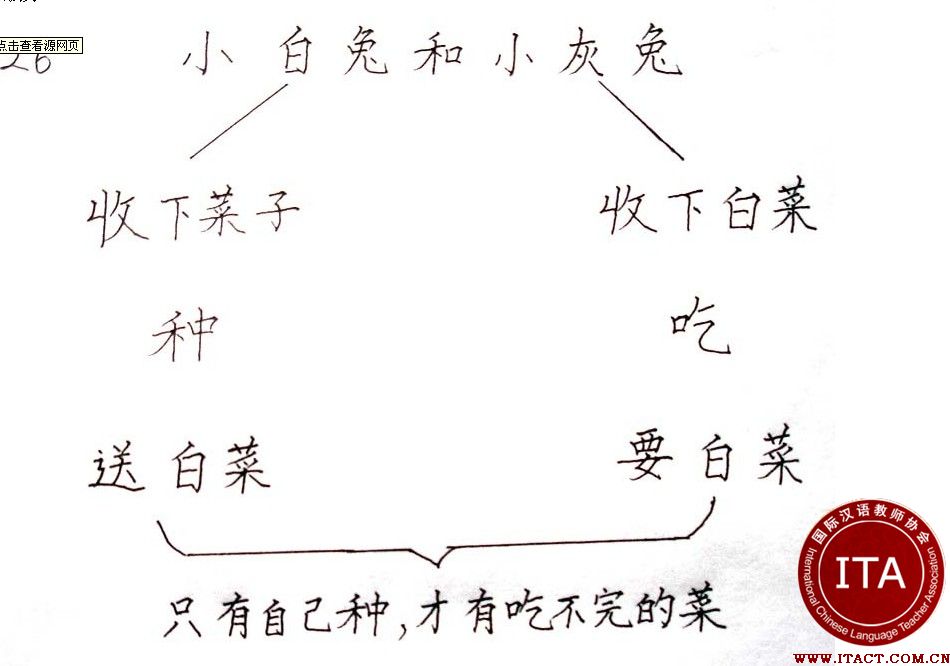 点击查看源网页
26
小白兔和小灰兔
收下菜子 收下白菜
种 吃
送白菜 要白菜
只有自己种,才有吃不完的菜
国际汉语教师协会
ITA
International Chinese Language Teacher Association
WWW.ITACT.COM.CN